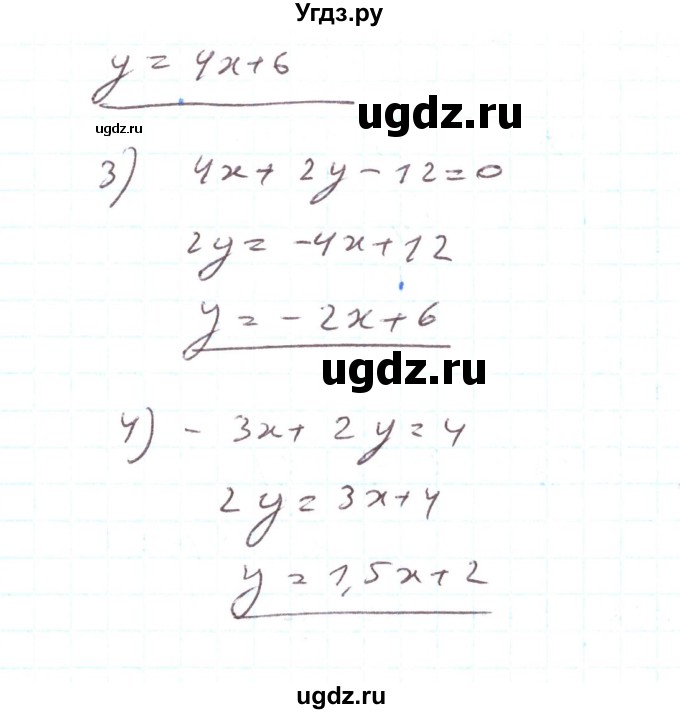 Угдз.ру
y = 4x+6
ugdz.ru
ugdz.ru
3) 4x+ 2y-12=0
2y= -4x+12
y = - 2x+6
ugdz.ru
4) - 3x+ 2y=4
2y= 3x+4
y = 1,5x+2
ugdz.ru